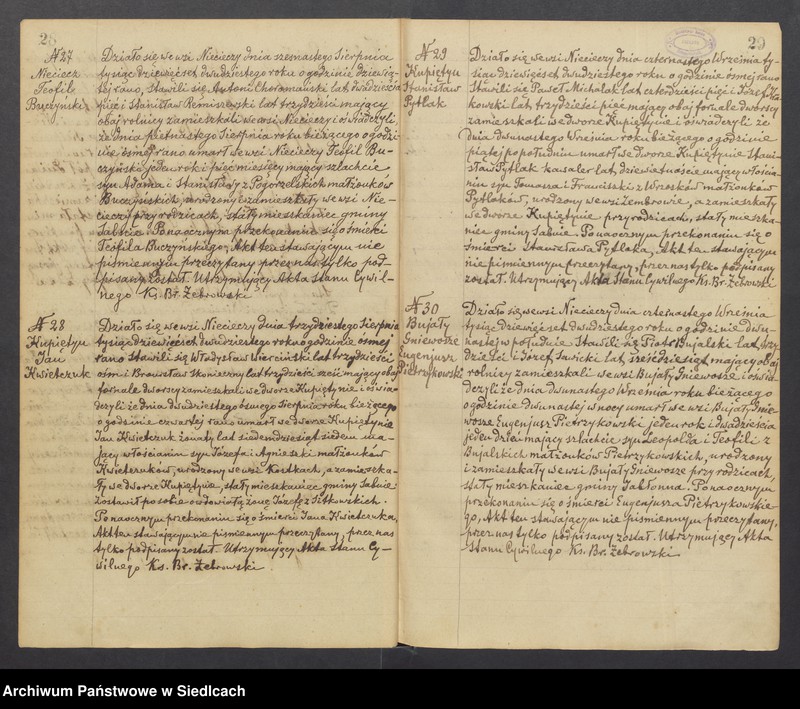 28
№ 27
Nieciecz
Teofil
Buczyński
Działo się we wsi Niecieczy dnia szesnastego Sierpnia
tysiąc dziewięćset dwudziestego roku o godzinie dziewią-
tej rano, stawili się Antoni Choromański lat dwadzieścia
pięć i Stanisław Remiszewski lat trzydzieści mający
obaj rolnicy zamieszkali we wsi Niecieczy i oświadczyli,
że dnia piętnastego Sierpnia roku bieżącego o godzi-
nie ósmej rano umarł we wsi Niecieczy Teofil Bu-
czyński jeden rok i pięć miesięcy mający szlachcic
syn Adama i Stanisławy z Pogorzelskich małżonków
Buczyńskich, urodzony i zamieszkały we wsi Nie-
cieczy przy rodzicach, stały mieszkaniec gminy
Sabnie. Po naocznym przekonaniu się o śmierci
Teofila Buczyńskiego, Akt ten stawającym nie
piśmiennym przeczytany przez nas tylko pod-
pisany został. Utrzymujący Akta Stanu Cywil-
nego Ks. Br. Żebrowski
№ 28
Kupiętyn
Jan
Kwietczuk
Działo się we wsi Niecieczy dnia trzydziestego Sierpnia
tysiąc dziewięćset dwudziestego roku o godzinie ósmej
rano Stawili się Władysław Wierciński lat trzydzieści
ośm i Bronisław Skonieczny lat trzydzieści sześć mający obaj
fornale dworscy zamieszkali we dworze Kupiętynie i oświad-
czyli że dnia dwudziestego ósmego Sierpnia roku bieżącego
o godzinie czwartej rano umarł we dworze Kupiętynie
Jan Kwietczuk żonaty lat siedemdziesiąt siedem ma-
jący włościanin syn Józefa i Agnieszki małżonków
Kwietczuków, urodzony we wsi Kostkach, a zamieszka-
ły we dworze Kupiętynie, stały mieszkaniec gminy Sabnie
zostawił po sobie owdowiałą żonę Józefę z Sitkowskich.
Po naocznym przekonaniu się o śmierci Jana Kwietczuka,
Akt ten stawającym nie piśmiennym przeczytany, przez nas
tylko podpisany został. Utrzymujący Akta Stanu Cy-
wilnego Ks. Br. Żebrowski
29
№ 29
Kupiętyn
Stanisław
Pytlak
Działo się we wsi Niecieczy dnia czternastego Września ty-
siąc dziewięćset dwudziestego roku o godzinie ósmej rano
Stawili się Paweł Michalak lat czterdzieści pięć i Józef
kowski lat trzydzieści pięć mający obaj fornale dworscy
zamieszkali we dworze Kupiętynie i oświadczyli że
dnia dwunastego Września roku bieżącego o godzinie
piątej popołudniu umarł we dworze Kupiętynie Stani-
sław Pytlak kawaler lat dziewiętnaście mający włościa-
nin syn Tomasza i Franciszki z Wrosków małżonków
Pytlaków, urodzony we wsi Zembrowie, a zamieszkały
we dworze Kupiętynie przy rodzicach, stały mieszka-
niec gminy Sabnie. Po naocznym przekonaniu się o
śmierci Stanisława Pytlaka, Akt ten stawającym
nie piśmiennym przeczytany, przez nas tylko podpisany
został. Utrzymujący Akta Stanu Cywilnego Ks. Br. Żebrowski
№ 30
Bujały
Gniewosze
Eugenjusz
Pietrzykowski
Działo się we wsi Niecieczy dnia czternastego Września
tysiąc dziewięćset dwudziestego roku o godzinie dwu-
nastej w południe Stawili się Piotr Bujalski lat trzy-
dzieści i Józef Suwicki lat sześćdziesiąt mający obaj
rolnicy zamieszkali we wsi Bujały Gniewosze i oświad-
czyli że dnia dwunastego Września roku bieżącego
o godzinie dwunastej w nocy umarł we wsi Bujały Gnie-
wosze Eugenjusz Pietrzykowski jeden rok i dwadzieścia
jeden dzień mający szlachcic syn Leopolda i Teofili z
Bujalskich małżonków Pietrzykowskich, urodzony
i zamieszkały we wsi Bujały Gniewosze przy rodzicach,
stały mieszkaniec gminy Jabłonna. Po naocznym
przekonaniu się o śmierci Eugenjusza Pietrzykowskie-
go, Akt ten stawającym nie piśmiennym przeczytany,
przez nas tylko podpisany został. Utrzymujący Akta
Stanu Cywilnego Ks. Br. Żebrowski
Archiwum Państwowe w Siedlcach